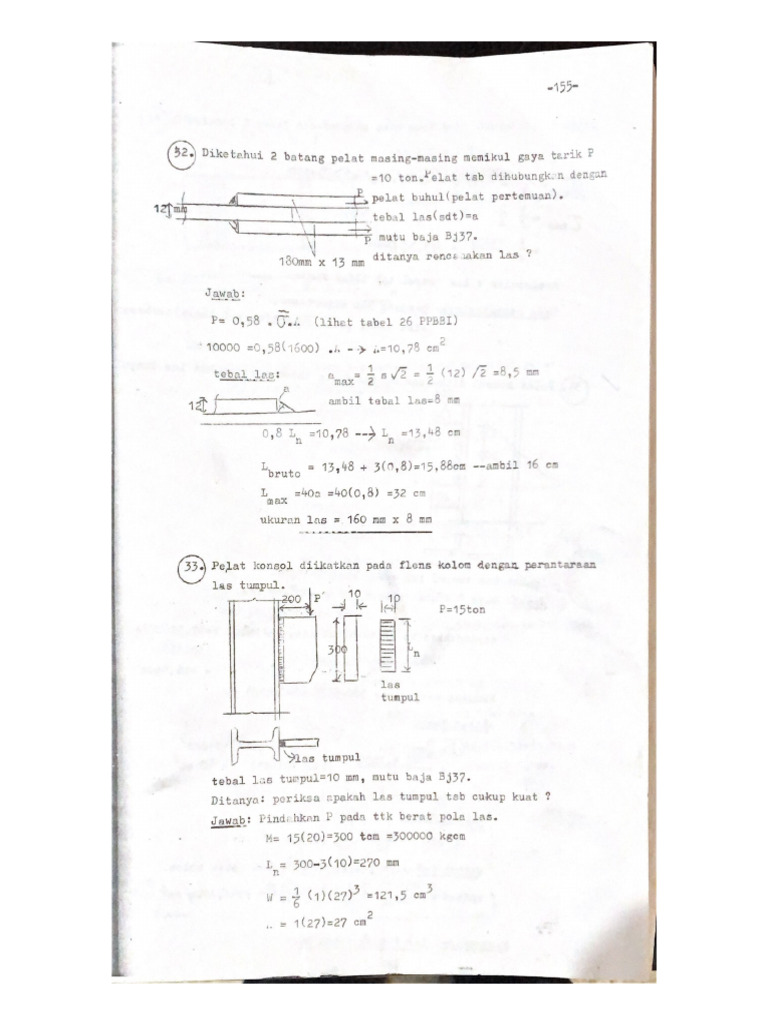 -155-
32. Diketahui 2 batang pelat masing-masing memikul gaya tarik P
=10 ton. Pelat tsb dihubungkan dengan
P pelat buhul(pelat pertemuan).
12 mm tebal las(sdt)=a
P mutu baja Bj37.
180mm x 13 mm ditanya rencanakan las ?
Jawab:
P= 0,58 . σ̄ .A (lihat tabel 26 PPBBI)
10000 =0,58(1600) .A --> A=10,78 cm²
tebal las: a max = 1/2 s √2 = 1/2 (12) √2 =8,5 mm
a
12 ambil tebal las=8 mm
0,8 Ln =10,78 --> Ln =13,48 cm
Lbruto = 13,48 + 3(0,8)=15,88cm --ambil 16 cm
Lmax =40a =40(0,8) =32 cm
ukuran las = 160 mm x 8 mm
33. Pelat konsol diikatkan pada flens kolom dengan perantaraan
las tumpul.
200 P 10 10
P=15ton
300 Ln
las
tumpul
las tumpul
tebal las tumpul=10 mm, mutu baja Bj37.
Ditanya: periksa apakah las tumpul tsb cukup kuat ?
Jawab: Pindahkan P pada ttk berat pola las.
M= 15(20)=300 tcm =300000 kgcm
Ln = 300-3(10)=270 mm
W = 1/6 (1)(27)³ =121,5 cm³
A = 1(27)=27 cm²